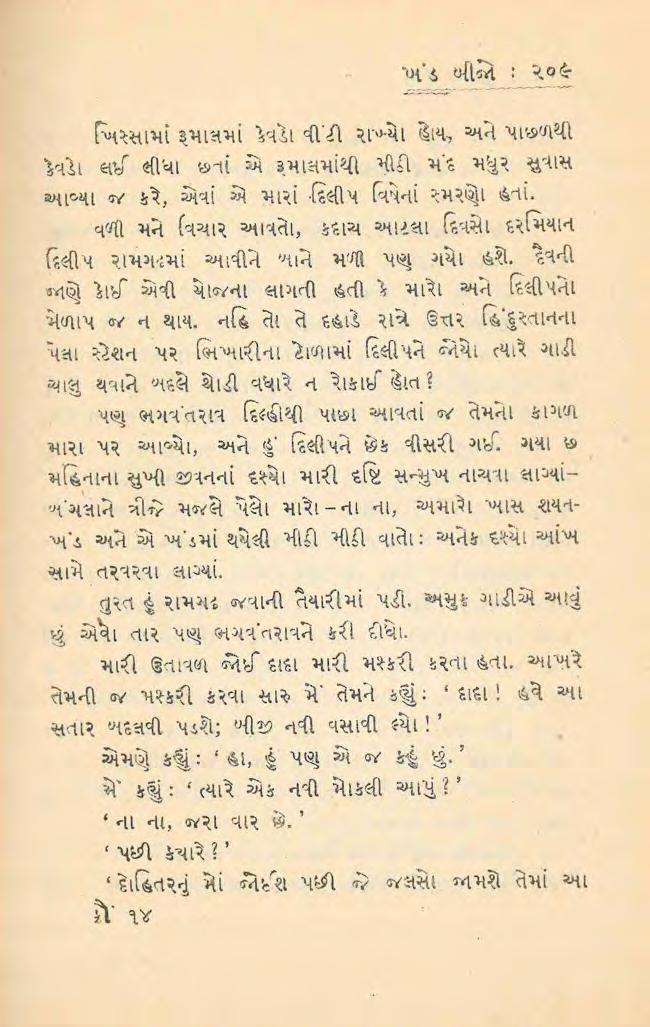 ખંડ બીજો : ૨૦૯
ખિસ્સામાં રૂમાલમાં કેવડો વીંટી રાખ્યો હોય, અને પાછળથી
કેવડો લઈ લીધા છતાં એ રૂમાલમાંથી મીઠી મંદ મધુર સુવાસ
આવ્યા જ કરે, એવાં એ મારાં દિલીપ વિષેનાં સ્મરણો હતાં.
વળી મને વિચાર આવતો, કદાચ આટલા દિવસો દરમિયાન
દિલીપ રામગઢમાં આવીને બાને મળી પણ ગયો હશે. દૈવની
જાણે કોઈ એવી યોજના લાગતી હતી કે મારો અને દિલીપનો
મેળાપ જ ન થાય. નહિ તો તે દહાડે રાત્રે ઉત્તર હિંદુસ્તાનના
પેલા સ્ટેશન પર ભિખારીના ટોળામાં દિલીપને જોયો ત્યારે ગાડી
ચાલુ થવાને બદલે થોડી વધારે ન રોકાઈ હોત?
પણ ભગવંતરાવ દિલ્હીથી પાછા આવતાં જ તેમનો કાગળ
મારા પર આવ્યો, અને હું દિલીપને છેક વીસરી ગઈ. ગયા છ
મહિનાના સુખી જીવનનાં દશ્યો મારી દષ્ટિ સન્મુખ નાચવા લાગ્યાં–
બંગલાને ત્રીજે મજલે પેલો મારો – ના ના, અમારો ખાસ શયન-
ખંડ અને એ ખંડમાં થયેલી મીઠી મીઠી વાતો: અનેક દશ્યો આંખ
સામે તરવરવા લાગ્યાં.
તુરત હું રામગઢ જવાની તૈયારીમાં પડી. અમુક ગાડીએ આવું
છું એવો તાર પણ ભગવંતરાવને કરી દીધો.
મારી ઉતાવળ જોઈ દાદા મારી મશ્કરી કરતા હતા. આખરે
તેમની જ મશ્કરી કરવા સારુ મેં તેમને કહ્યું: ‘દાદા! હવે આ
સતાર બદલવી પડશે; બીજી નવી વસાવી લ્યો!’
એમણે કહ્યું: ‘હા, હું પણ એ જ કહું છું.’
મેં કહ્યું: ‘ત્યારે એક નવી મોકલી આપું?’
‘ના ના, જરા વાર છે.’
‘પછી ક્યારે?’
‘દોહિતરનું મોં જોઈશ પછી જે જલસો જામશે તેમાં આ
ક્રૌં ૧૪